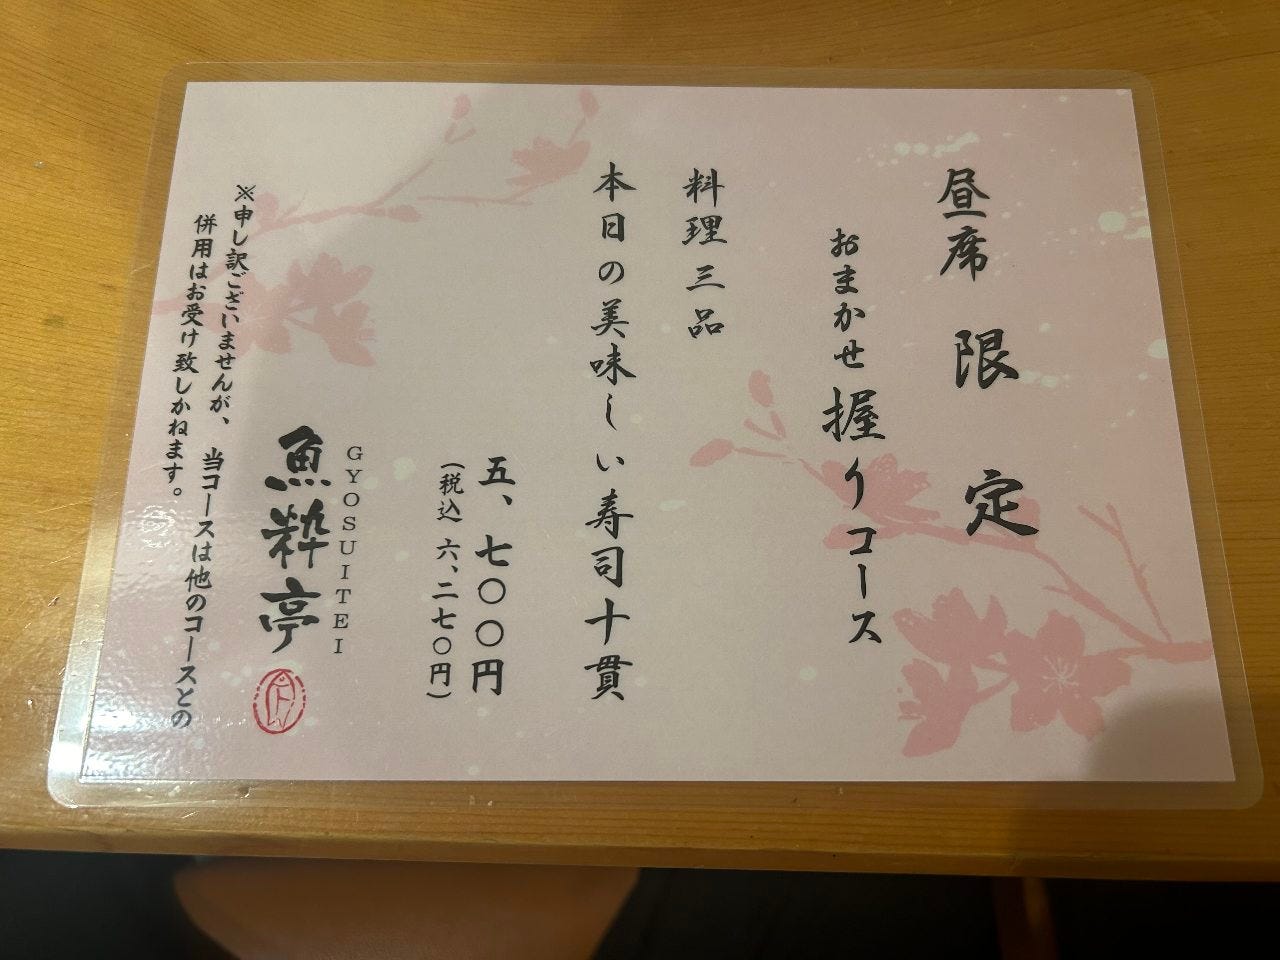 昼席限定
おまかせ握りコース
料理三品
本日の美味しい寿司十貫
五、七〇〇円
(税込 六、二七〇円)
GYOSUITEI
魚粋亭
※申し訳ございませんが、当コースは他のコースとの
併用はお受け致しかねます。